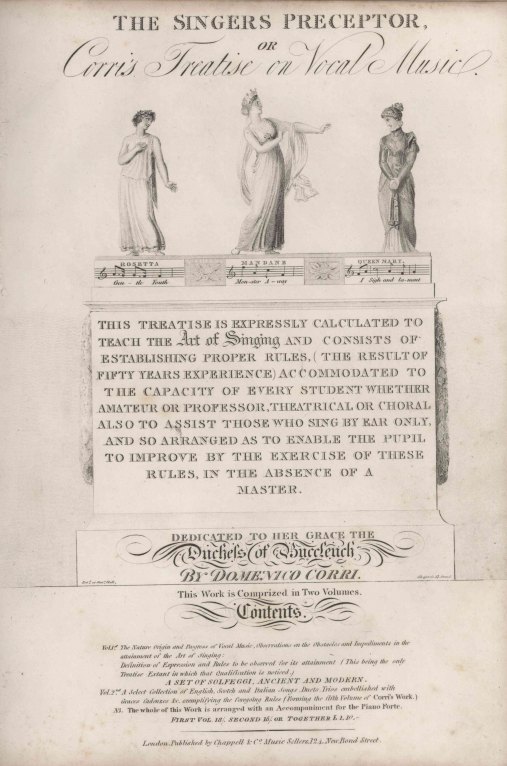 THE SINGERS PRECEPTOR,
OR
Corri's Treatise on Vocal Music.
ROSETTA
MANDANE
QUEEN MARY.
Gen - tle Youth
Mon-ster A - way
I Sigh and la-ment
THIS TREATISE IS EXPRESSLY CALCULATED TO
TEACH THE Art of Singing AND CONSISTS OF
ESTABLISHING PROPER RULES, (THE RESULT OF
FIFTY YEARS EXPERIENCE) ACCOMMODATED TO
THE CAPACITY OF EVERY STUDENT WHETHER
AMATEUR OR PROFESSOR, THEATRICAL OR CHORAL
ALSO TO ASSIST THOSE WHO SING BY EAR ONLY,
AND SO ARRANGED AS TO ENABLE THE PUPIL
TO IMPROVE BY THE EXERCISE OF THESE
RULES, IN THE ABSENCE OF A
MASTER.
DEDICATED TO HER GRACE THE
Duchess of Buccleuch,
BY DOMENICO CORRI.
This Work is Comprized in Two Volumes.
Contents.
Vol. 1st The Nature Origin and Progress of Vocal Music, Observations on the Obstacles and Impediments in the
attainment of the Art of Singing:
Definition of Expression and Rules to be observed for its attainment (This being the only
Treatise Extant in which that Qualification is noticed;)
A SET OF SOLFEGGI, ANCIENT AND MODERN.
Vol. 2nd A Select Collection of English, Scotch and Italian Songs Duets Trios embellished with
Graces Cadences &c. exemplifying the foregoing Rules (Forming the fifth Volume of Corri's Work.)
The whole of this Work is arranged with an Accompaniment for the Piano Forte.
FIRST VOL 18/. SECOND 16/. OR TOGETHER £.1.10.-
London, Published by Chappell & Co. Music Sellers, 124, New Bond Street.